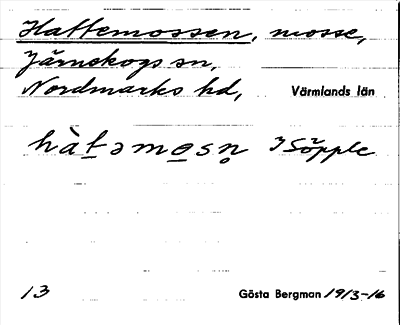 Hattemossen, mosse,
Järnskogs sn,
Nordmarks hd, Värmlands län
hàt̲əmo̲sn̥
13 Gösta Bergman 1913-16